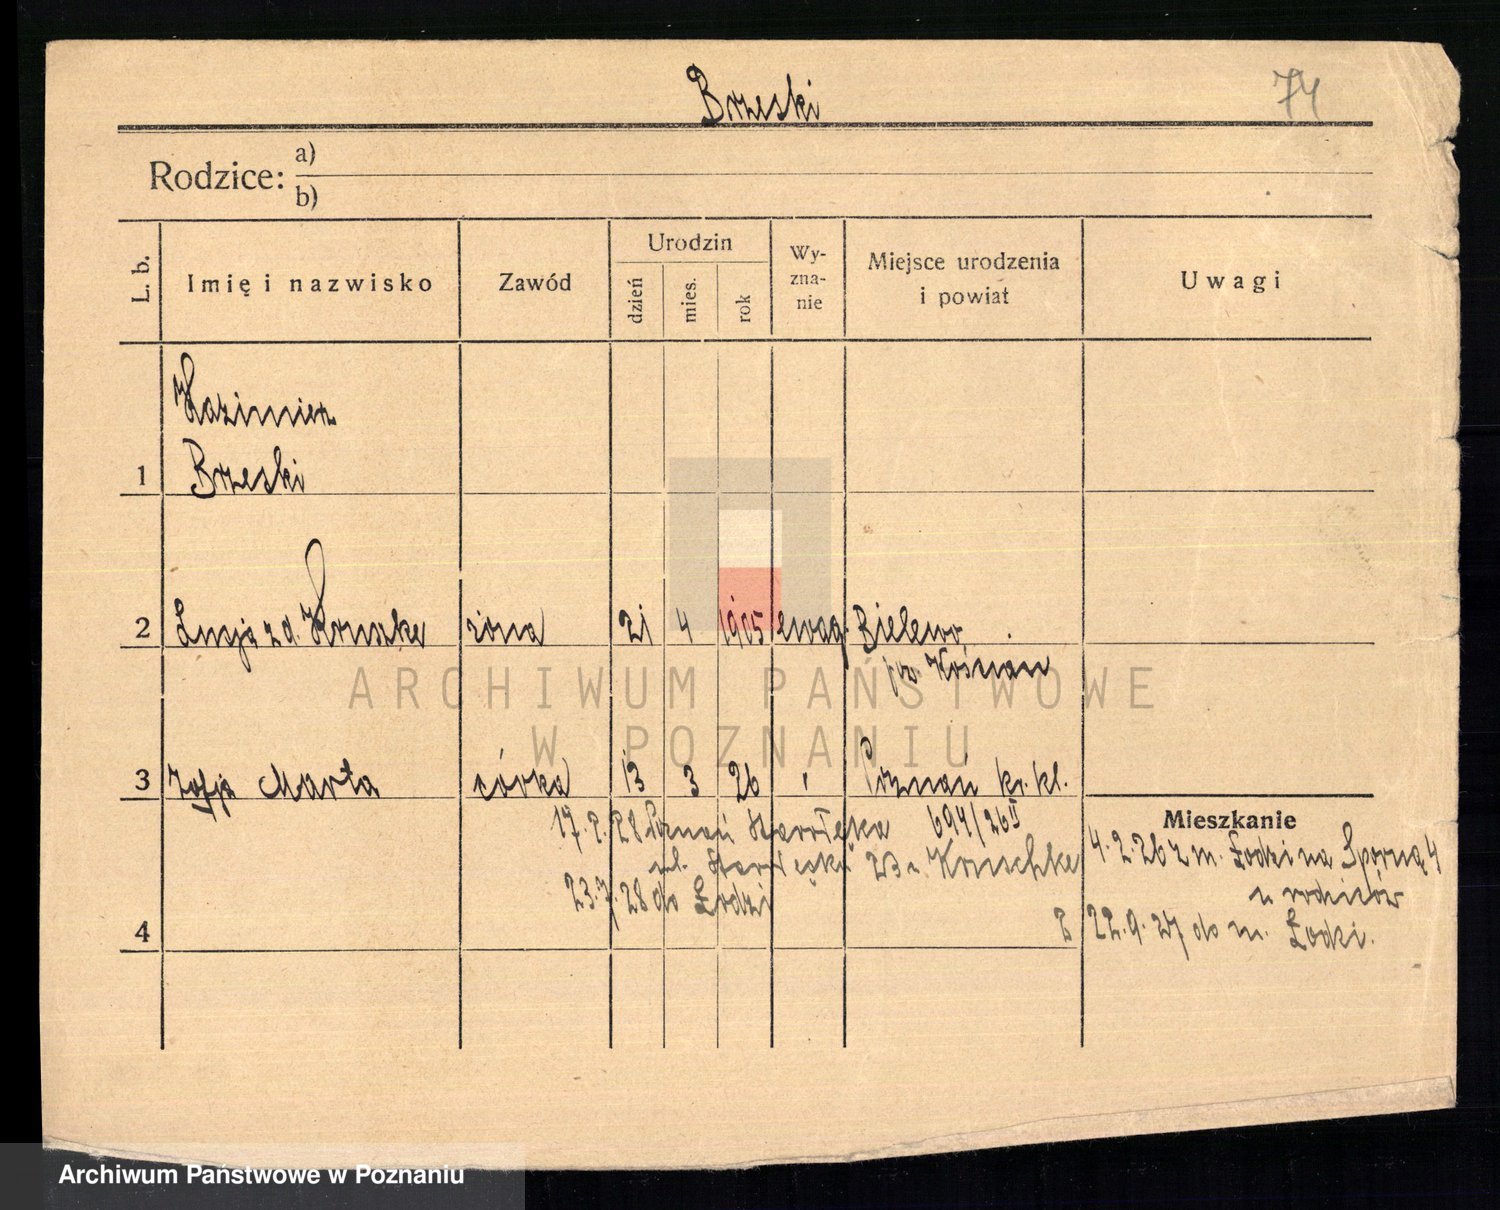 Brzeski
74
Rodzice: a)
b)
L. b.
Imię i nazwisko
Zawód
Urodzin
dzień
mies.
rok
Wy-
zna-
nie
Miejsce urodzenia
i powiat
Uwagi
Kazimierz
1 Brzeski
2 Lucja z d. Kruszke żona 21 4 1905 ewag. Bielewo
pw. Kościan
3 Zofja Marta córka 13 3 26 Poznań kr. kl.
694/26 II
17.2.28 Poznań Starołęka
ul. Starołęka 23 u. Kruschke
23.7.28 do Łodzi
Mieszkanie
4.2.26 z m. Łodzi na Sporną 4
u rodziców
4
22.9.27 do m. Łodzi.
ARCHIWUM PAŃSTWOWE
W POZNANIU
Archiwum Państwowe w Poznaniu